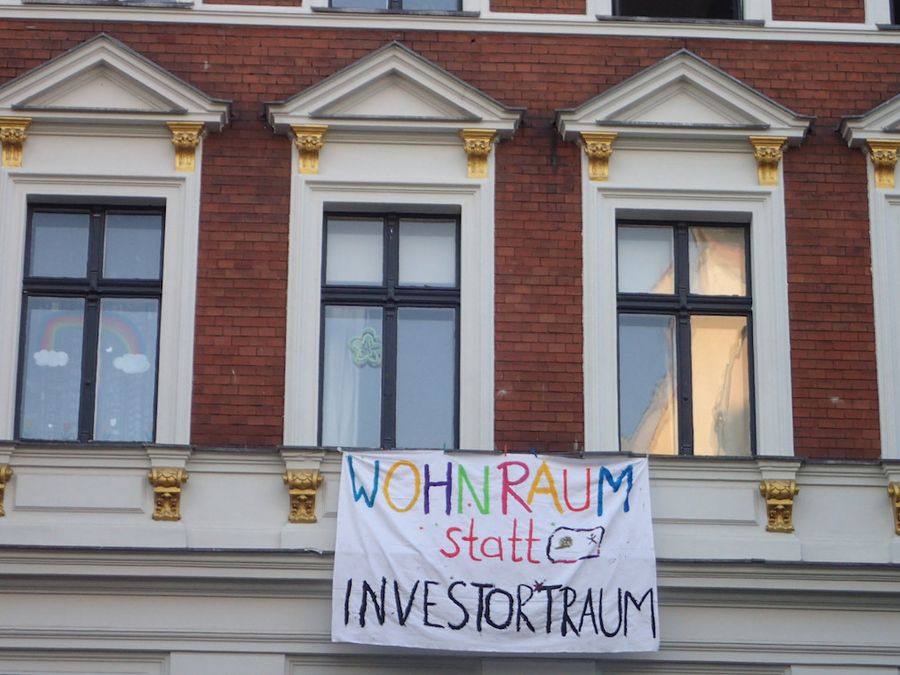 WOHNRAUM
statt
INVESTOR*TRAUM